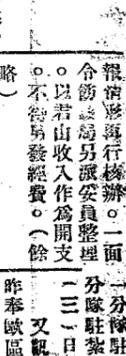 報情形再行核辦。一面
令飭該局另派委員整理
。以若山收入作為開支
。不得另發經費。（餘
略）
一分隊
分隊駐紮
二三、日
又訊
昨奉歐區